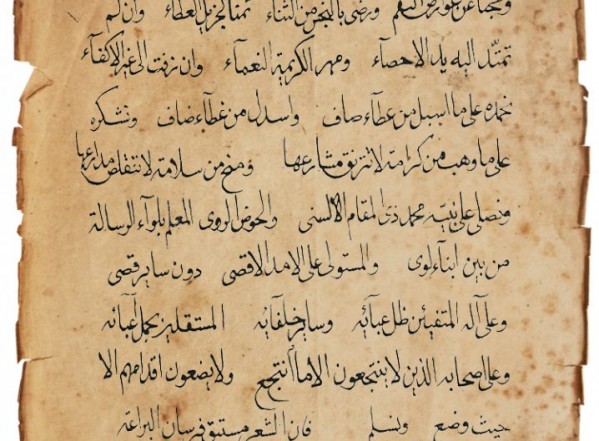 ورضى بالبخس من الثناء ثمنا لجزيل العطاء وان لم
تمتد اليه يد الاحصآء ومهر الكريمة النعمآء وان زفت الى غير الاكفآء
نحمده على ما اسبل من عطآء صاف واسدل من غطآء ضاف ونشكره
على ما وهب من كرامة لا تترنق مشارعها ومنح من سلامة لا تنتقاض مدارعها
ونصلى على نبيه محمد ذى المقام الألسنى والحوض الروى المعلم بلوآء الرسالة
من بين ابنآء لوى والمستولى على الامد الاقصى دون ساير قصى
وعلى آله المتفيئين ظل عبآئه وساير خلفآئه المستقلين بحمل أعبائه
وعلى اصحابه الذين لا ينتجعون الا ما أنتجع ولا يضعون اقدامهم الا
حيث وضع ونسلم فان الشعر مستبق فرسان البراعة